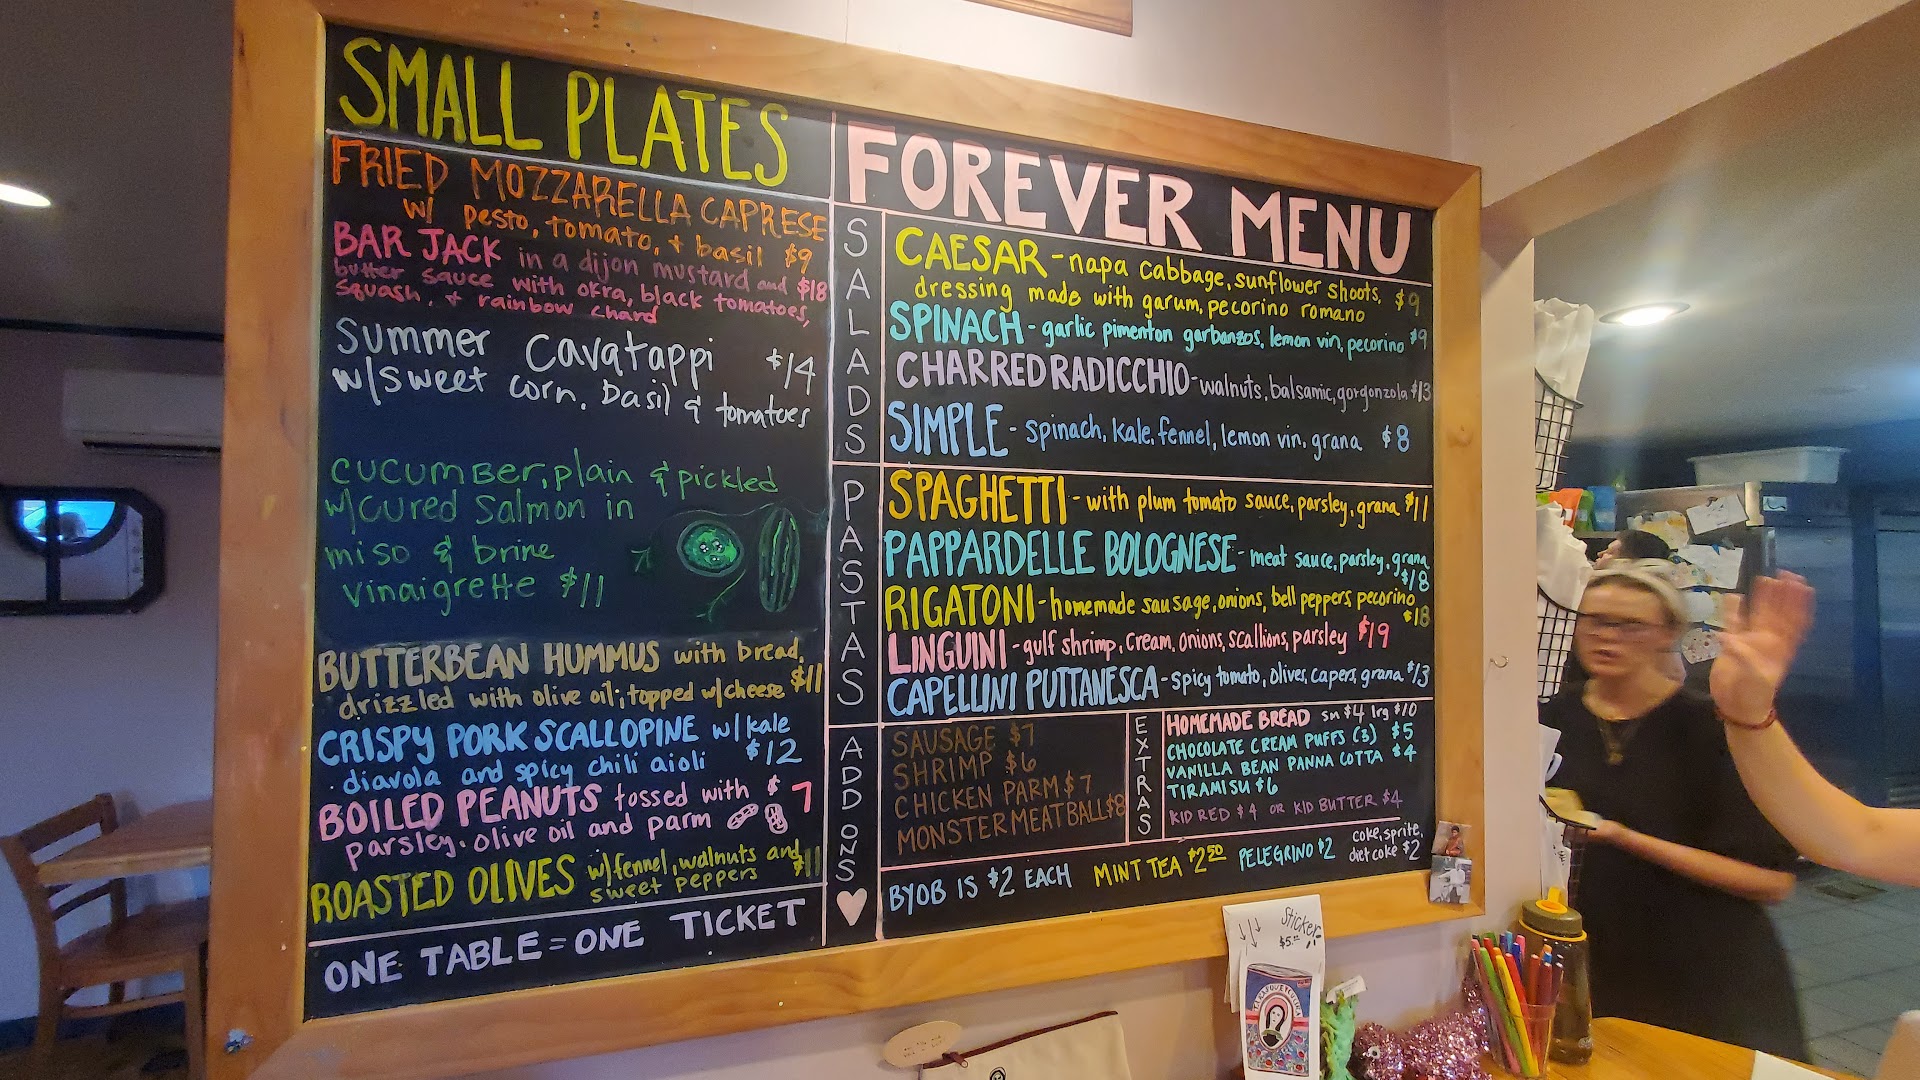 SMALL PLATES
FRIED MOZZARELLA CAPRESE
w/ pesto, tomato, + basil $9
BAR JACK in a dijon mustard and $18
butter sauce with okra, black tomatoes,
squash, + rainbow chard
Summer Cavatappi $14
w/sweet corn, basil & tomatoes
cucumber, plain & pickled
w/cured salmon in
miso & brine
vinaigrette $11
BUTTERBEAN HUMMUS with bread,
drizzled with olive oil; topped w/cheese $11
CRISPY PORK SCALLOPINE w/ kale
diavola and spicy chili aioli $12
BOILED PEANUTS tossed with $7
parsley, olive oil and parm
ROASTED OLIVES w/fennel, walnuts and
sweet peppers $11
ONE TABLE = ONE TICKET
FOREVER MENU
SALADS
CAESAR - napa cabbage, sunflower shoots, $9
dressing made with garum, pecorino romano
SPINACH - garlic pimenton garbanzos, lemon vin, pecorino $9
CHARRED RADICCHIO - walnuts, balsamic, gorgonzola $13
SIMPLE - spinach, kale, fennel, lemon vin, grana $8
PASTAS
SPAGHETTI - with plum tomato sauce, parsley, grana $11
PAPPARDELLE BOLOGNESE - meat sauce, parsley, grana
$18
RIGATONI - homemade sausage, onions, bell peppers pecorino
$18
LINGUINI - gulf shrimp, cream, onions, scallions, parsley $19
CAPELLINI PUTTANESCA - spicy tomato, olives, capers, grana $13
ADD ONS
SAUSAGE $7
SHRIMP $6
CHICKEN PARM $7
MONSTER MEATBALL $8
EXTRAS
HOMEMADE BREAD sm $4 lrg $10
CHOCOLATE CREAM PUFFS (3) $5
VANILLA BEAN PANNA COTTA $4
TIRAMISU $6
KID RED $4 OR KID BUTTER $4
BYOB IS $2 EACH
MINT TEA $2.50
PELEGRINO $2
coke, sprite,
diet coke $2
Sticker
$5.00